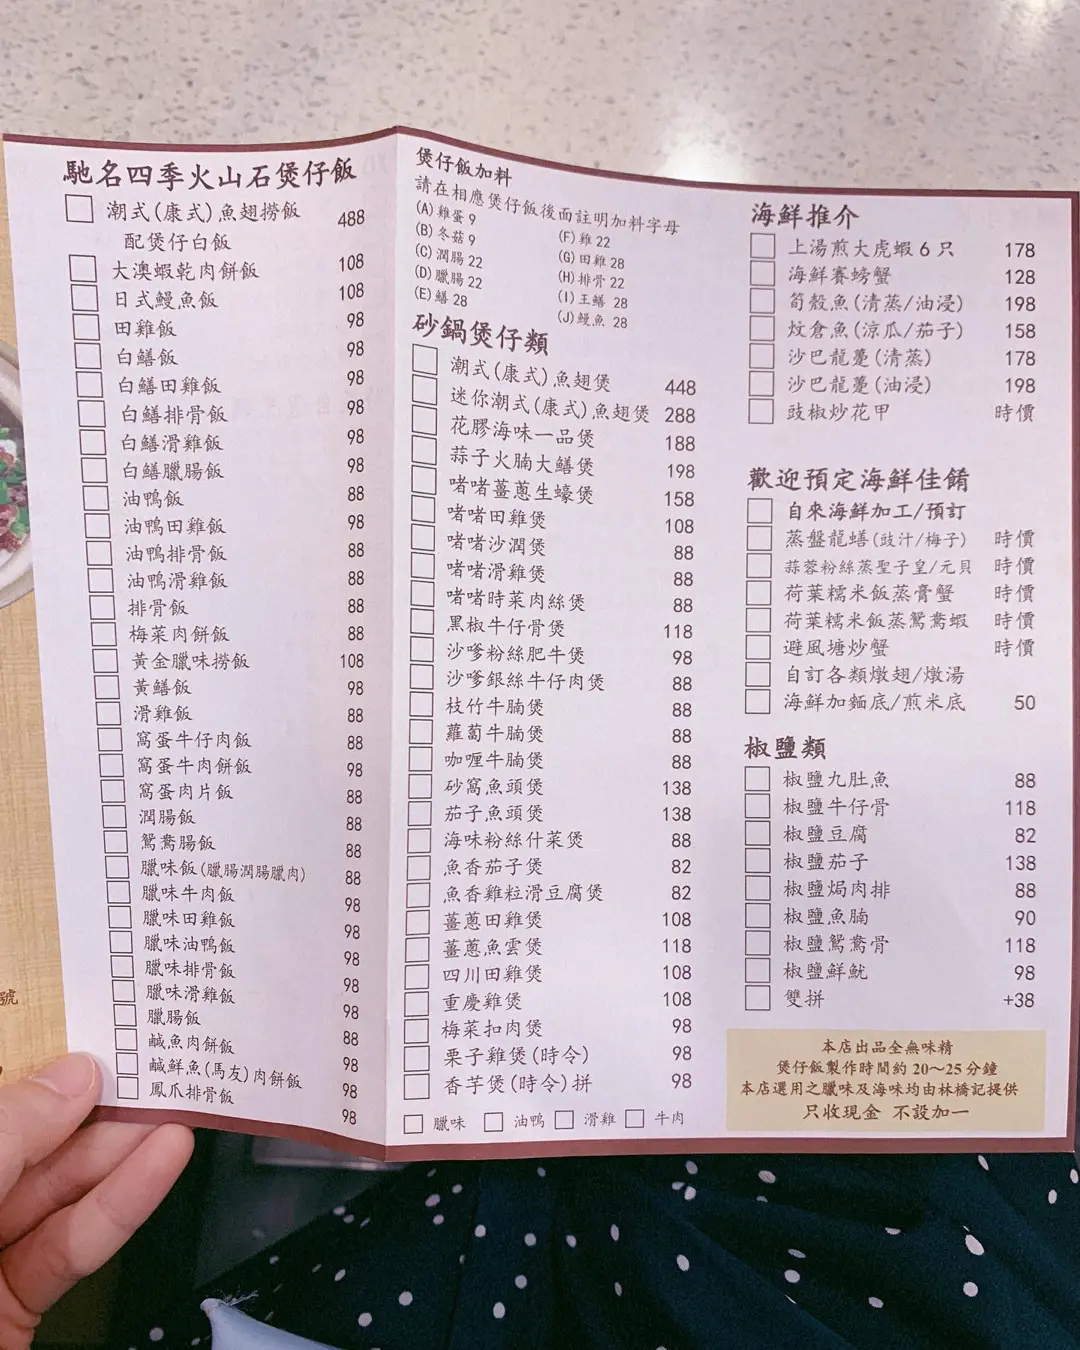 馳名四季火山石煲仔飯
潮式(康式)魚翅撈飯 488
配煲仔白飯
大澳蝦乾肉餅飯 108
日式鰻魚飯 108
田雞飯 98
白鱔飯 98
白鱔田雞飯 98
白鱔排骨飯 98
白鱔滑雞飯 98
白鱔臘腸飯 98
油鴨飯 88
油鴨田雞飯 98
油鴨排骨飯 88
油鴨滑雞飯 88
排骨飯 88
梅菜肉餅飯 88
黃金臘味撈飯 108
黃鱔飯 98
滑雞飯 88
窩蛋牛仔肉飯 88
窩蛋牛肉餅飯 98
窩蛋肉片飯 88
潤腸飯 88
鴛鴦腸飯 88
臘味飯(臘腸潤腸臘肉) 88
臘味牛肉飯 98
臘味田雞飯 98
臘味油鴨飯 98
臘味排骨飯 98
臘味滑雞飯 98
臘腸飯 88
鹹魚肉餅飯 98
鹹鮮魚(馬友)肉餅飯 98
鳳爪排骨飯 98
煲仔飯加料
請在相應煲仔飯後面註明加料字母
(A) 雞蛋 9
(B) 冬菇 9
(C) 潤腸 22
(D) 臘腸 22
(E) 鱔 28
(F) 雞 22
(G) 田雞 28
(H) 排骨 22
(I) 王鱔 28
(J) 鰻魚 28
砂鍋煲仔類
潮式(康式)魚翅煲 448
迷你潮式(康式)魚翅煲 288
花膠海味一品煲 188
蒜子火腩大鱔煲 198
啫啫薑蔥生蠔煲 158
啫啫田雞煲 108
啫啫沙潤煲 88
啫啫滑雞煲 88
啫啫時菜肉絲煲 88
黑椒牛仔骨煲 118
沙嗲粉絲肥牛煲 98
沙嗲銀絲牛仔肉煲 88
枝竹牛腩煲 88
蘿蔔牛腩煲 88
咖喱牛腩煲 88
砂窩魚頭煲 138
茄子魚頭煲 138
海味粉絲什菜煲 88
魚香茄子煲 82
魚香雞粒滑豆腐煲 82
薑蔥田雞煲 108
薑蔥魚雲煲 118
四川田雞煲 108
重慶雞煲 108
梅菜扣肉煲 98
栗子雞煲(時令) 98
香芋煲(時令)拼 98
臘味 油鴨 滑雞 牛肉
海鮮推介
上湯煎大虎蝦6只 178
海鮮賽螃蟹 128
筍殼魚(清蒸/油浸) 198
炆倉魚(涼瓜/茄子) 158
沙巴龍躉(清蒸) 178
沙巴龍躉(油浸) 198
豉椒炒花甲 時價
歡迎預定海鮮佳餚
自來海鮮加工/預訂
蒸盤龍鱔(豉汁/梅子) 時價
蒜蓉粉絲蒸聖子皇/元貝 時價
荷葉糯米飯蒸膏蟹 時價
荷葉糯米飯蒸鴛鴦蝦 時價
避風塘炒蟹 時價
自訂各類燉翅/燉湯
海鮮加麵底/煎米底 50
椒鹽類
椒鹽九肚魚 88
椒鹽牛仔骨 118
椒鹽豆腐 82
椒鹽茄子 138
椒鹽焗肉排 88
椒鹽魚腩 90
椒鹽鴛鴦骨 118
椒鹽鮮魷 98
雙拼 +38
本店出品全無味精
煲仔飯製作時間約20～25分鐘
本店選用之臘味及海味均由林橋記提供
只收現金 不設加一
號